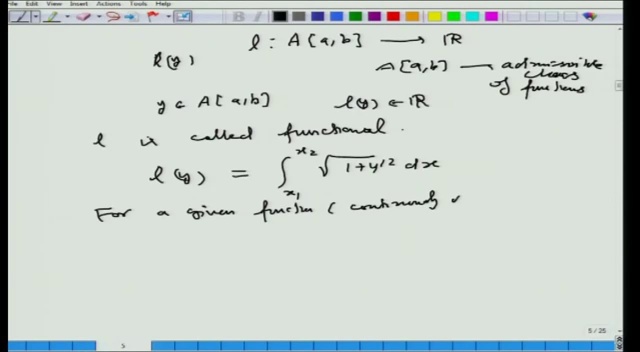 File Edit View Insert Actions Tools Help
l : A[a,b] → ℝ
l(y)
A[a,b] — admissible class of functions
y ∈ A[a,b] l(y) ∈ ℝ
l is called functional.
l(y) = ∫_{x₁}^{x₂} √(1+y'²) dx
For a given function ( continuously
5 / 25
5